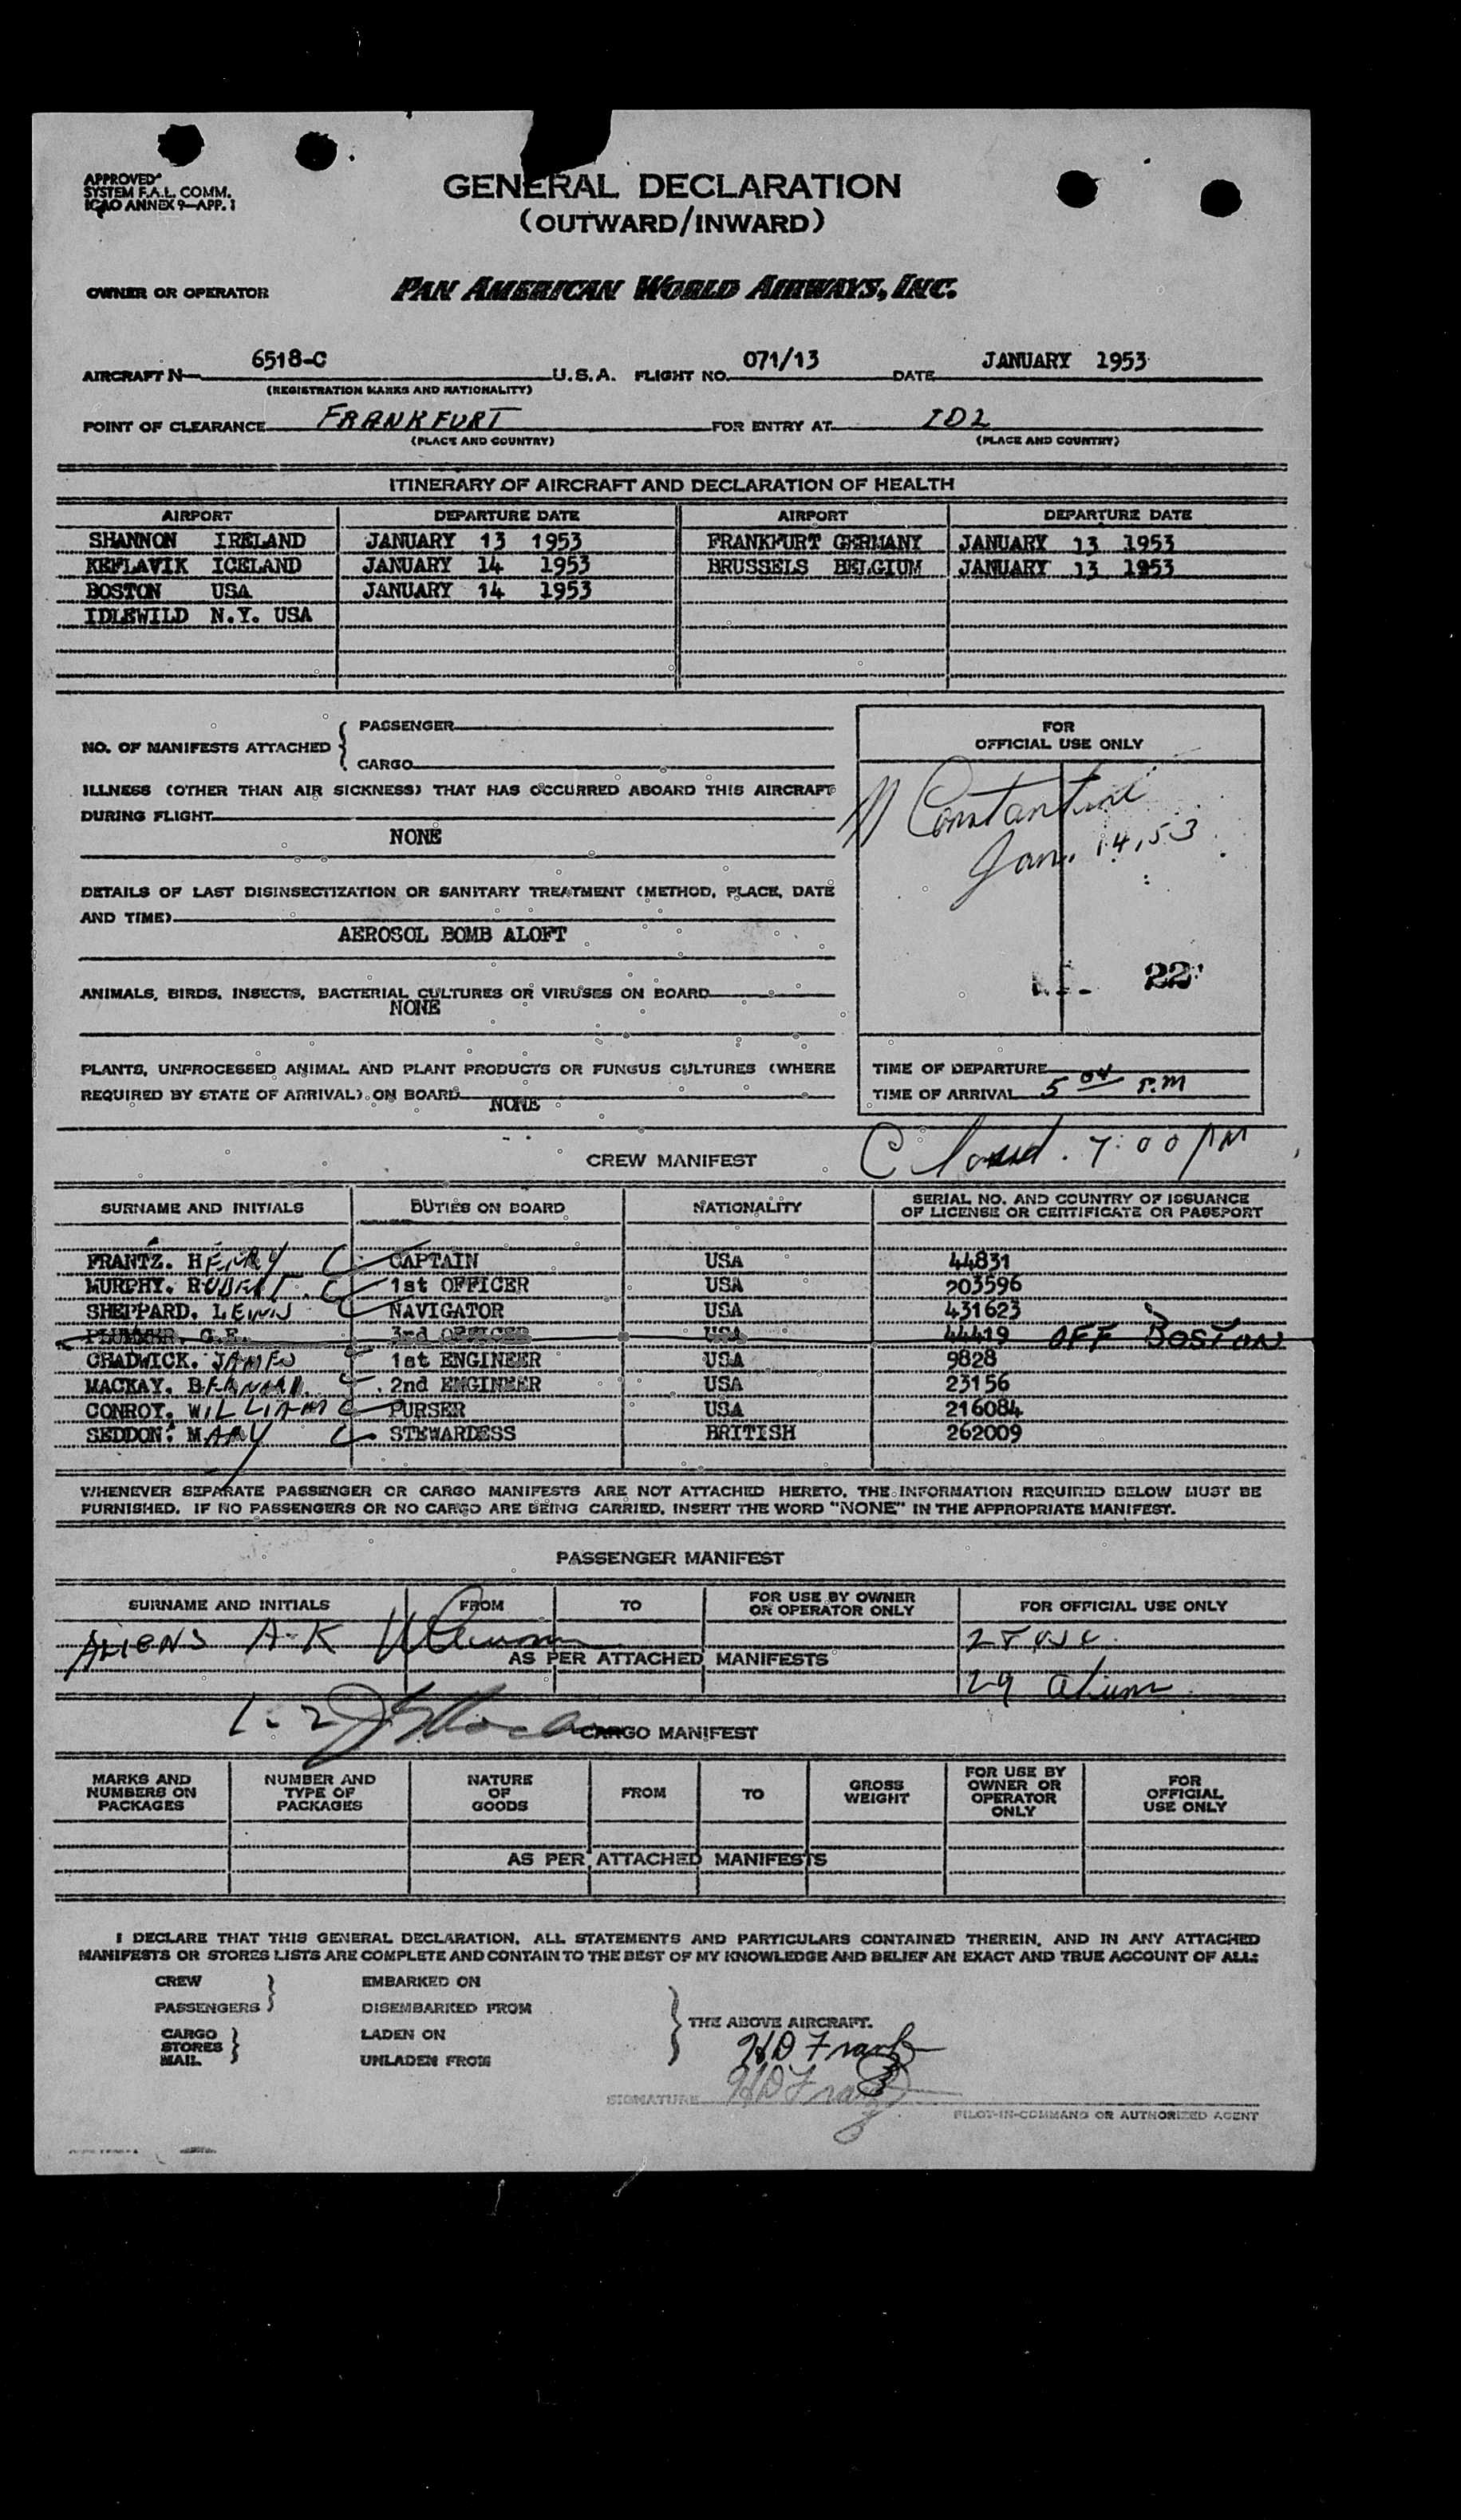 APPROVED
SYSTEM F.A.L. COMM.
ICAO ANNEX 9—APP. 1
GENERAL DECLARATION
(OUTWARD/INWARD)
OWNER OR OPERATOR PAN AMERICAN WORLD AIRWAYS, INC.
AIRCRAFT N— 6518-C U.S.A. FLIGHT NO. 071/13 DATE JANUARY 1953
(REGISTRATION MARKS AND NATIONALITY)
POINT OF CLEARANCE FRANKFURT FOR ENTRY AT IDL
(PLACE AND COUNTRY) (PLACE AND COUNTRY)
ITINERARY OF AIRCRAFT AND DECLARATION OF HEALTH
AIRPORT DEPARTURE DATE AIRPORT DEPARTURE DATE
SHANNON IRELAND JANUARY 13 1953 FRANKFURT GERMANY JANUARY 13 1953
KEFLAVIK ICELAND JANUARY 14 1953 BRUSSELS BELGIUM JANUARY 13 1953
BOSTON USA JANUARY 14 1953
IDLEWILD N.Y. USA
NO. OF MANIFESTS ATTACHED { PASSENGER
CARGO
ILLNESS (OTHER THAN AIR SICKNESS) THAT HAS OCCURRED ABOARD THIS AIRCRAFT
DURING FLIGHT
NONE
DETAILS OF LAST DISINSECTIZATION OR SANITARY TREATMENT (METHOD, PLACE, DATE
AND TIME)
AEROSOL BOMB ALOFT
ANIMALS, BIRDS, INSECTS, BACTERIAL CULTURES OR VIRUSES ON BOARD
NONE
PLANTS, UNPROCESSED ANIMAL AND PLANT PRODUCTS OR FUNGUS CULTURES (WHERE
REQUIRED BY STATE OF ARRIVAL) ON BOARD
NONE
FOR
OFFICIAL USE ONLY
Constantine
Jan. 14, 53
22
TIME OF DEPARTURE
TIME OF ARRIVAL 5 04 P.M
Closed. 7:00 PM
CREW MANIFEST
SURNAME AND INITIALS DUTIES ON BOARD NATIONALITY SERIAL NO. AND COUNTRY OF ISSUANCE
OF LICENSE OR CERTIFICATE OR PASSPORT
FRANTZ. HENRY CAPTAIN USA 44831
MURPHY. ROBERT. 1st OFFICER USA 203596
SHEPPARD. LEWIS NAVIGATOR USA 431623
PLUMMER. G.E. 3rd OFFICER USA 44419 OFF BOSTON
CHADWICK. JAMES 1st ENGINEER USA 9828
MACKAY. BERNARD. 2nd ENGINEER USA 23156
CONROY. WILLIAM PURSER USA 216084
SEDDON. MARY STEWARDESS BRITISH 262009
WHENEVER SEPARATE PASSENGER OR CARGO MANIFESTS ARE NOT ATTACHED HERETO, THE INFORMATION REQUIRED BELOW MUST BE
FURNISHED. IF NO PASSENGERS OR NO CARGO ARE BEING CARRIED, INSERT THE WORD "NONE" IN THE APPROPRIATE MANIFEST.
PASSENGER MANIFEST
SURNAME AND INITIALS FROM TO FOR USE BY OWNER
OR OPERATOR ONLY FOR OFFICIAL USE ONLY
ALIENS A-K
AS PER ATTACHED MANIFESTS
29 aliens
L-Z
CARGO MANIFEST
MARKS AND
NUMBERS ON
PACKAGES NUMBER AND
TYPE OF
PACKAGES NATURE
OF
GOODS FROM TO GROSS
WEIGHT FOR USE BY
OWNER OR
OPERATOR
ONLY FOR
OFFICIAL
USE ONLY
AS PER ATTACHED MANIFESTS
I DECLARE THAT THIS GENERAL DECLARATION, ALL STATEMENTS AND PARTICULARS CONTAINED THEREIN, AND IN ANY ATTACHED
MANIFESTS OR STORES LISTS ARE COMPLETE AND CONTAIN TO THE BEST OF MY KNOWLEDGE AND BELIEF AN EXACT AND TRUE ACCOUNT OF ALL:
CREW EMBARKED ON
PASSENGERS DISEMBARKED FROM
THE ABOVE AIRCRAFT.
CARGO LADEN ON
STORES
MAIL UNLADEN FROM
HD Frantz
SIGNATURE HD Frantz
PILOT-IN-COMMAND OR AUTHORIZED AGENT